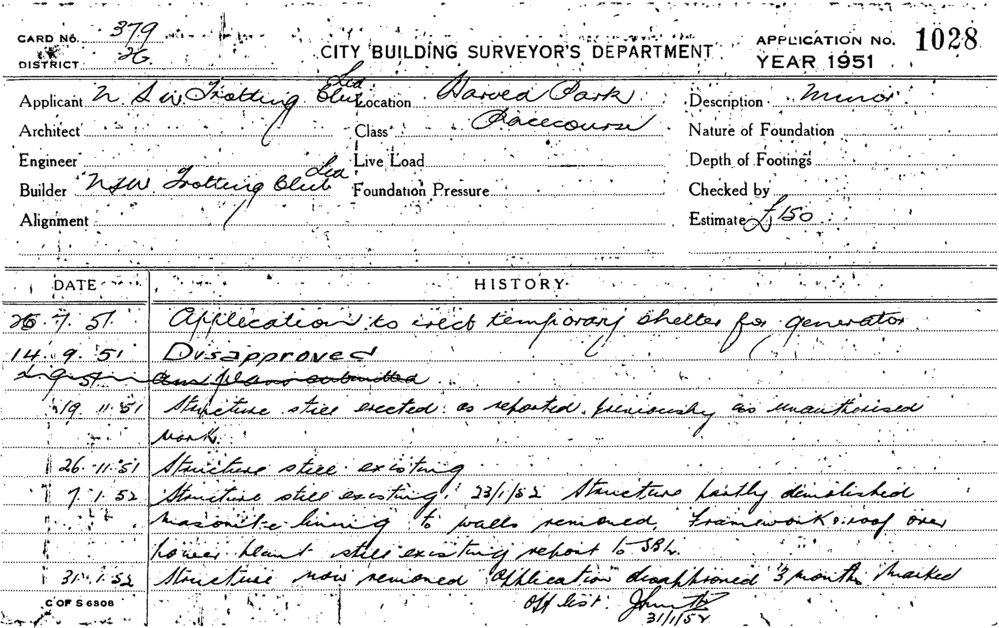 CARD No. 379
DISTRICT 26
CITY BUILDING SURVEYOR'S DEPARTMENT
APPLICATION No. 1028
YEAR 1951
Applicant N S W Trotting Club Ltd
Location Harold Park
Description Minor
Architect
Class Racecourse
Nature of Foundation
Engineer
Live Load
Depth of Footings
Builder NSW Trotting Club Ltd
Foundation Pressure
Checked by
Alignment
Estimate £150
DATE HISTORY
26 7 51 Application to erect temporary shelter for generator
14 9 51 Disapproved
plans submitted
19 11 51 Structure still erected as reported previously as unauthorised
work
26 11 51 Structure still existing
7 1 52 Structure still existing 23/1/52 Structure partly demolished
masonite lining to walls removed, framework & roof over
power plant still existing report to
31 1 52 Structure now removed application disapproved 3 months Marked
off list.
31/1/52
C OF S 6308